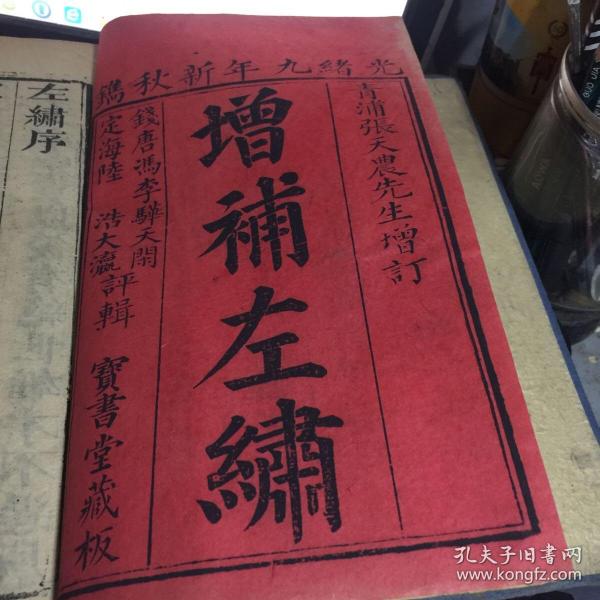 光緒九年新秋鐫
青浦張天農先生增訂
增補左繡
錢唐馮李驊天閑
定海陸浩大瀛評輯
寶書堂藏板
左繡序
孔夫子旧书网
www.kongfz.com